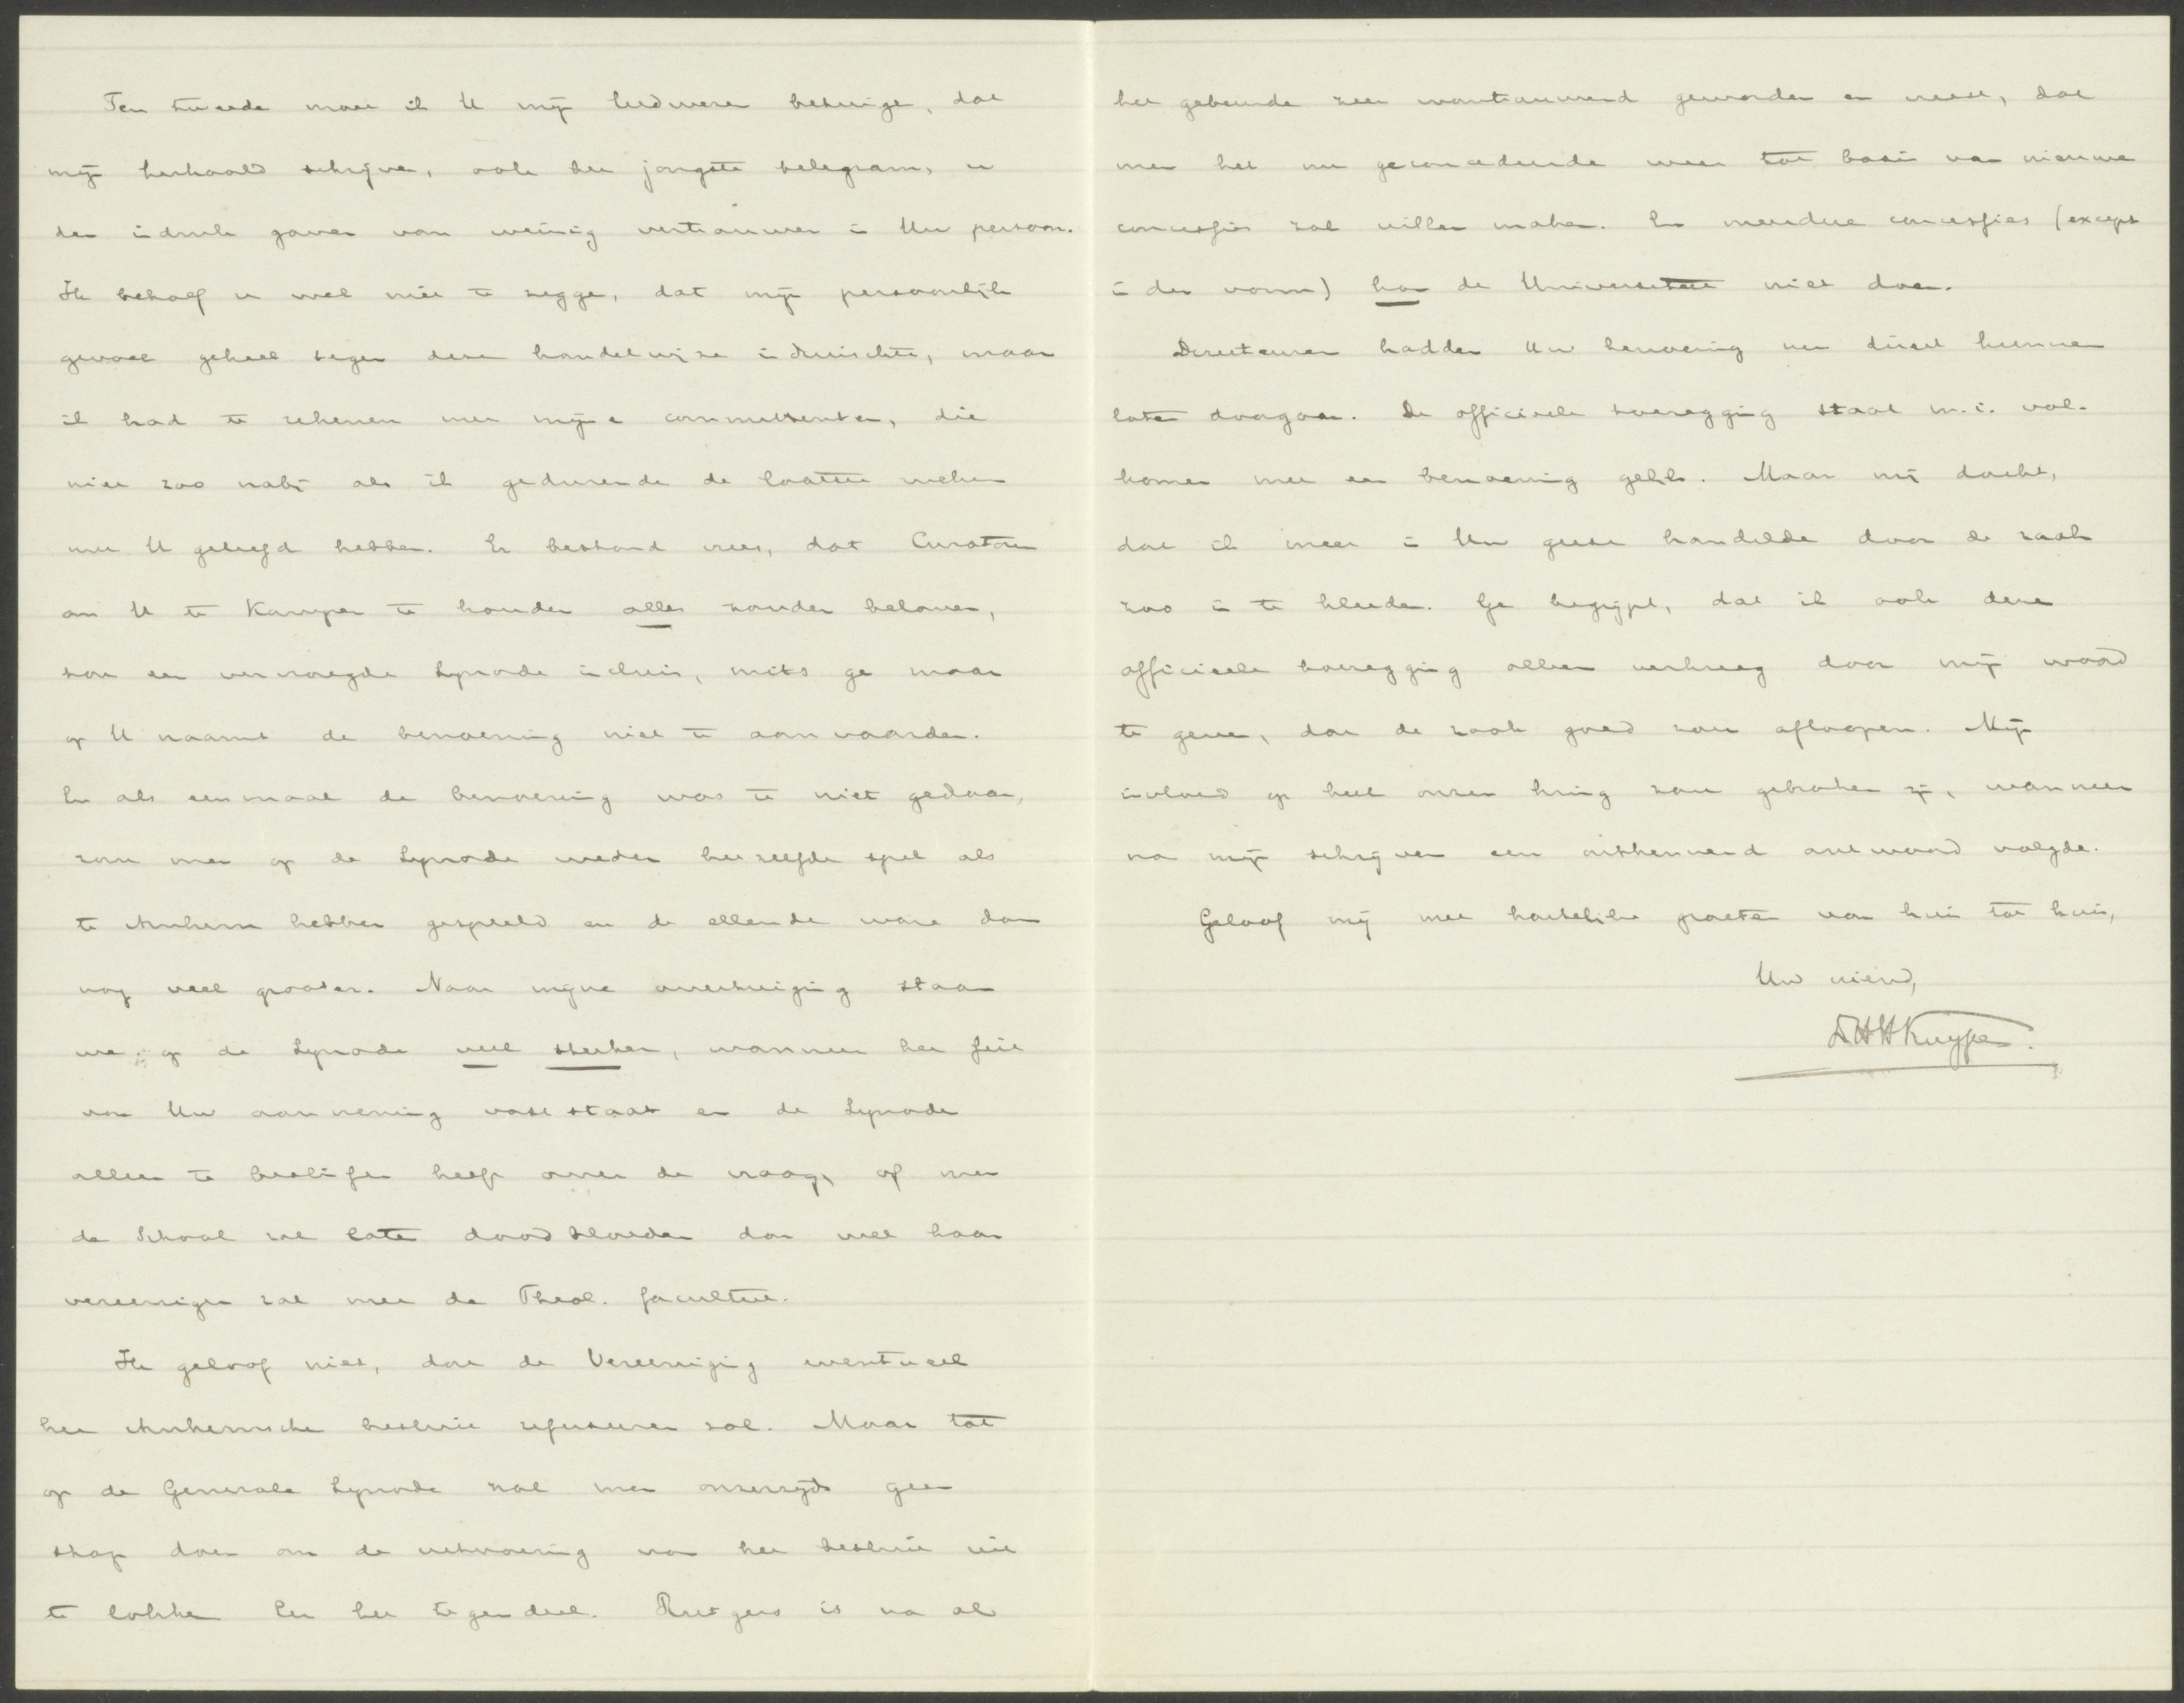 Ten tweede moet ik U mijn leedwezen betuigen, dat
mijn herhaald schrijven, ook het jongste telegram, u
den indruk gaven van weinig vertrouwen in Uw persoon.
Ik behoef u wel niet te zeggen, dat mijn persoonlijk
gevoel geheel tegen deze handelwijze indruischte, maar
ik had te rekenen met mijne committenten, die
niet zoo nabij als ik gedurende de laatste weken
met U geleefd hebben. Er bestond vrees, dat Curatoren
om U te Kampen te houden alles zouden beloven,
tot een vervroegde Synode incluis, mits ge maar
op U naamt de benoeming niet te aanvaarden.
En als eenmaal de benoeming was te niet gedaan,
zou men op de Synode weder hetzelfde spel als
te Arnhem hebben gespeeld en de ellende ware dan
nog veel grooter. Naar mijne overtuiging staan
we op de Synode veel sterker, wanneer het feit
van Uw aanneming vaststaat en de Synode
alleen te beslissen heeft over de vraag, of men
de School zal laten doodbloeden dan wel haar
vereenigen zal met de Theol. faculteit.
Ik geloof niet, dat de Vereeniging eventueel
het Arnhemsche besluit refuseeren zal. Maar tot
op de Generale Synode zal men onzerzijds geen
stap doen om de uitvoering van het besluit uit
te lokken. Eer het tegendeel. Rutgers is na al
het gebeurde zeer wantrouwend geworden en vreest, dat
men het nu geconcedeerde weer tot basis van nieuwe
concessies zal willen maken. En meerdere concessies (except
in den vorm) kan de Universiteit niet doen.
Directeuren hadden Uw benoeming met disel kunnen
laten doorgaan. De officieele toezegging staat m.i. vol-
komen met een benoeming gelijk. Maar mij dacht,
dat ik meer in Uw geest handelde door de zaak
zoo in te kleeden. Ge begrijpt, dat ik ook deze
officieele toezegging alleen verkreeg door mijn woord
te geven, dat de zaak goed zou afloopen. Mijn
invloed op heel onzen kring zou gebroken zijn, wanneer
na mijn schrijven een ontkennend antwoord volgde.
Geloof mij met hartelijke groeten van huis tot huis,
Uw vriend,
HHKuyper.